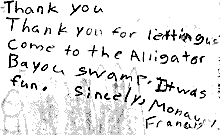 Thank you
Thank you for letting us
Come to the Alligator
Bayou swamp. It was
fun. Sincely, Monay
Francis